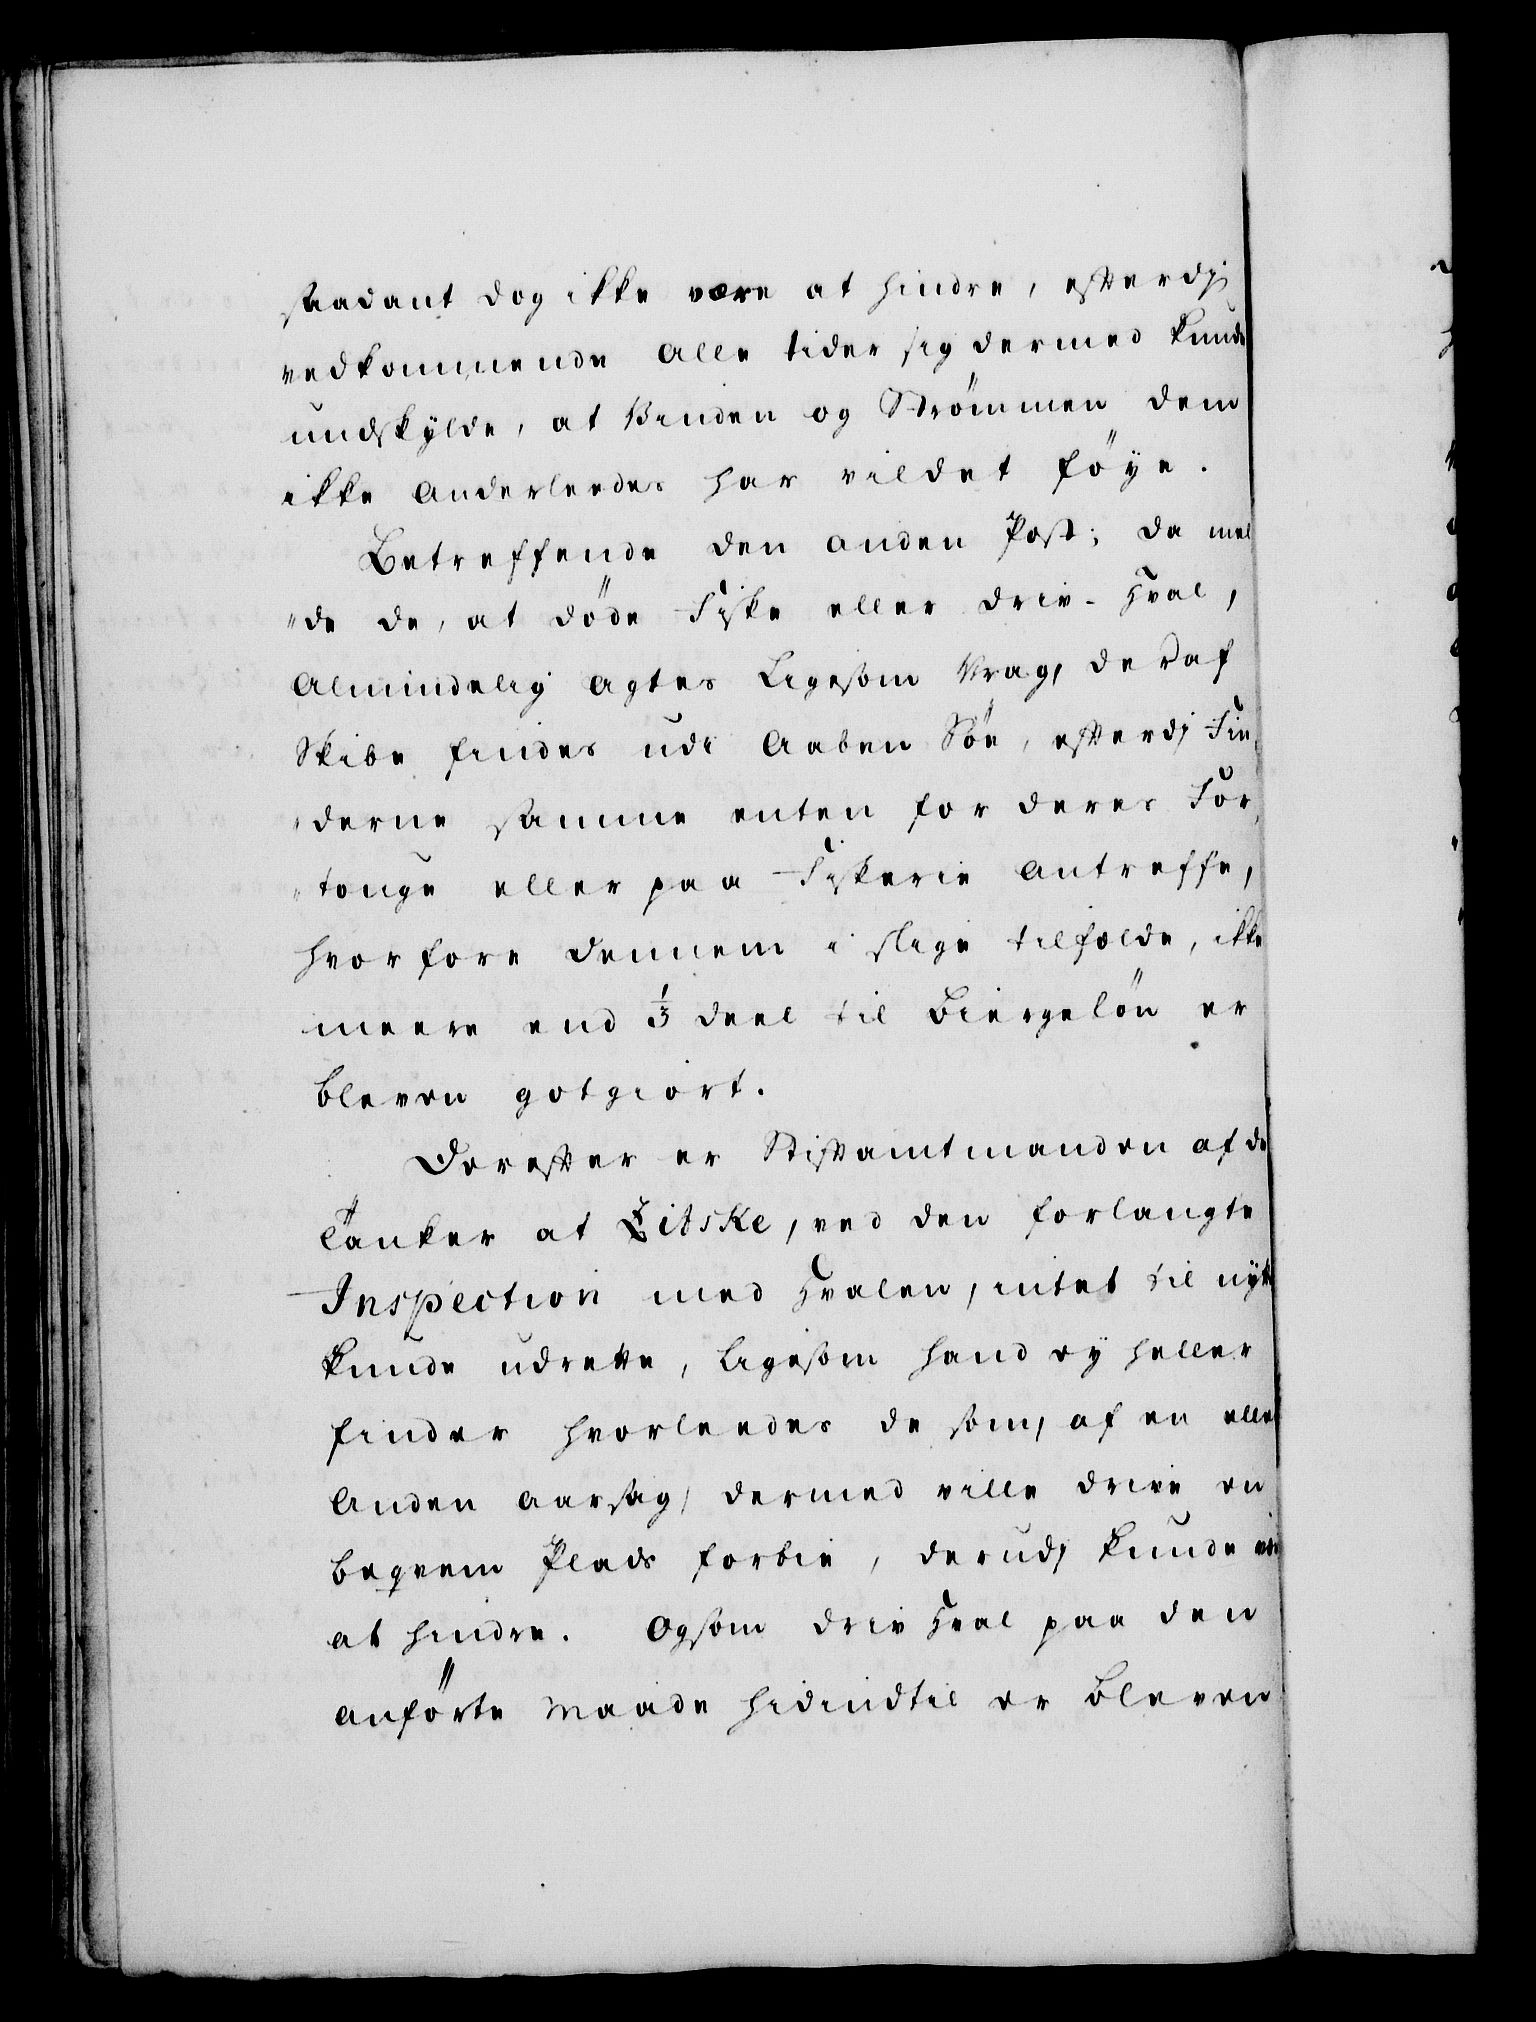 saadant dog ikke være at hindre, efterdj
vedkommende alle tider sig dermed kunde
undskylde, at Vinden og Strömmen dem
ikke anderleedes har vildet föÿe.
Betreffende den anden Post; da mel
"de de, at döde Fiske eller Driv-Hval,
Almindelig agtes Ligesom Vrag, deraf
Skibe findes udi Aaben Söe, efterdj Fin
"derne samme enten for deres For
"touge eller paa Fiskerie antreffe,
hvorfore dennem i slige tilfælde, ikke
meere end 1/3 deel til Biergelön er
bleven gotgiort.
Derefter er Stiftamtmanden af de
Tanker at Zitske, ved den forlangte
Inspection med Hvalen, intet til nÿtte
kunde udrette, ligesom hand eÿ heller
finder hvorleedes de som, af en eller
Anden aarsag, dermed ville drive en
beqvem Plads forbie, derudj kunde
at hindre. Og som driv Hval paa den
anförte Maade hidindtil er bleven